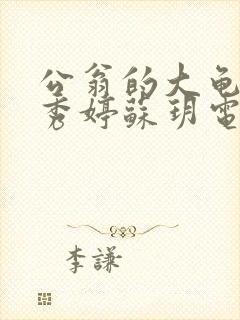 公翁的大龟
秀婷蘇玥電
李謙